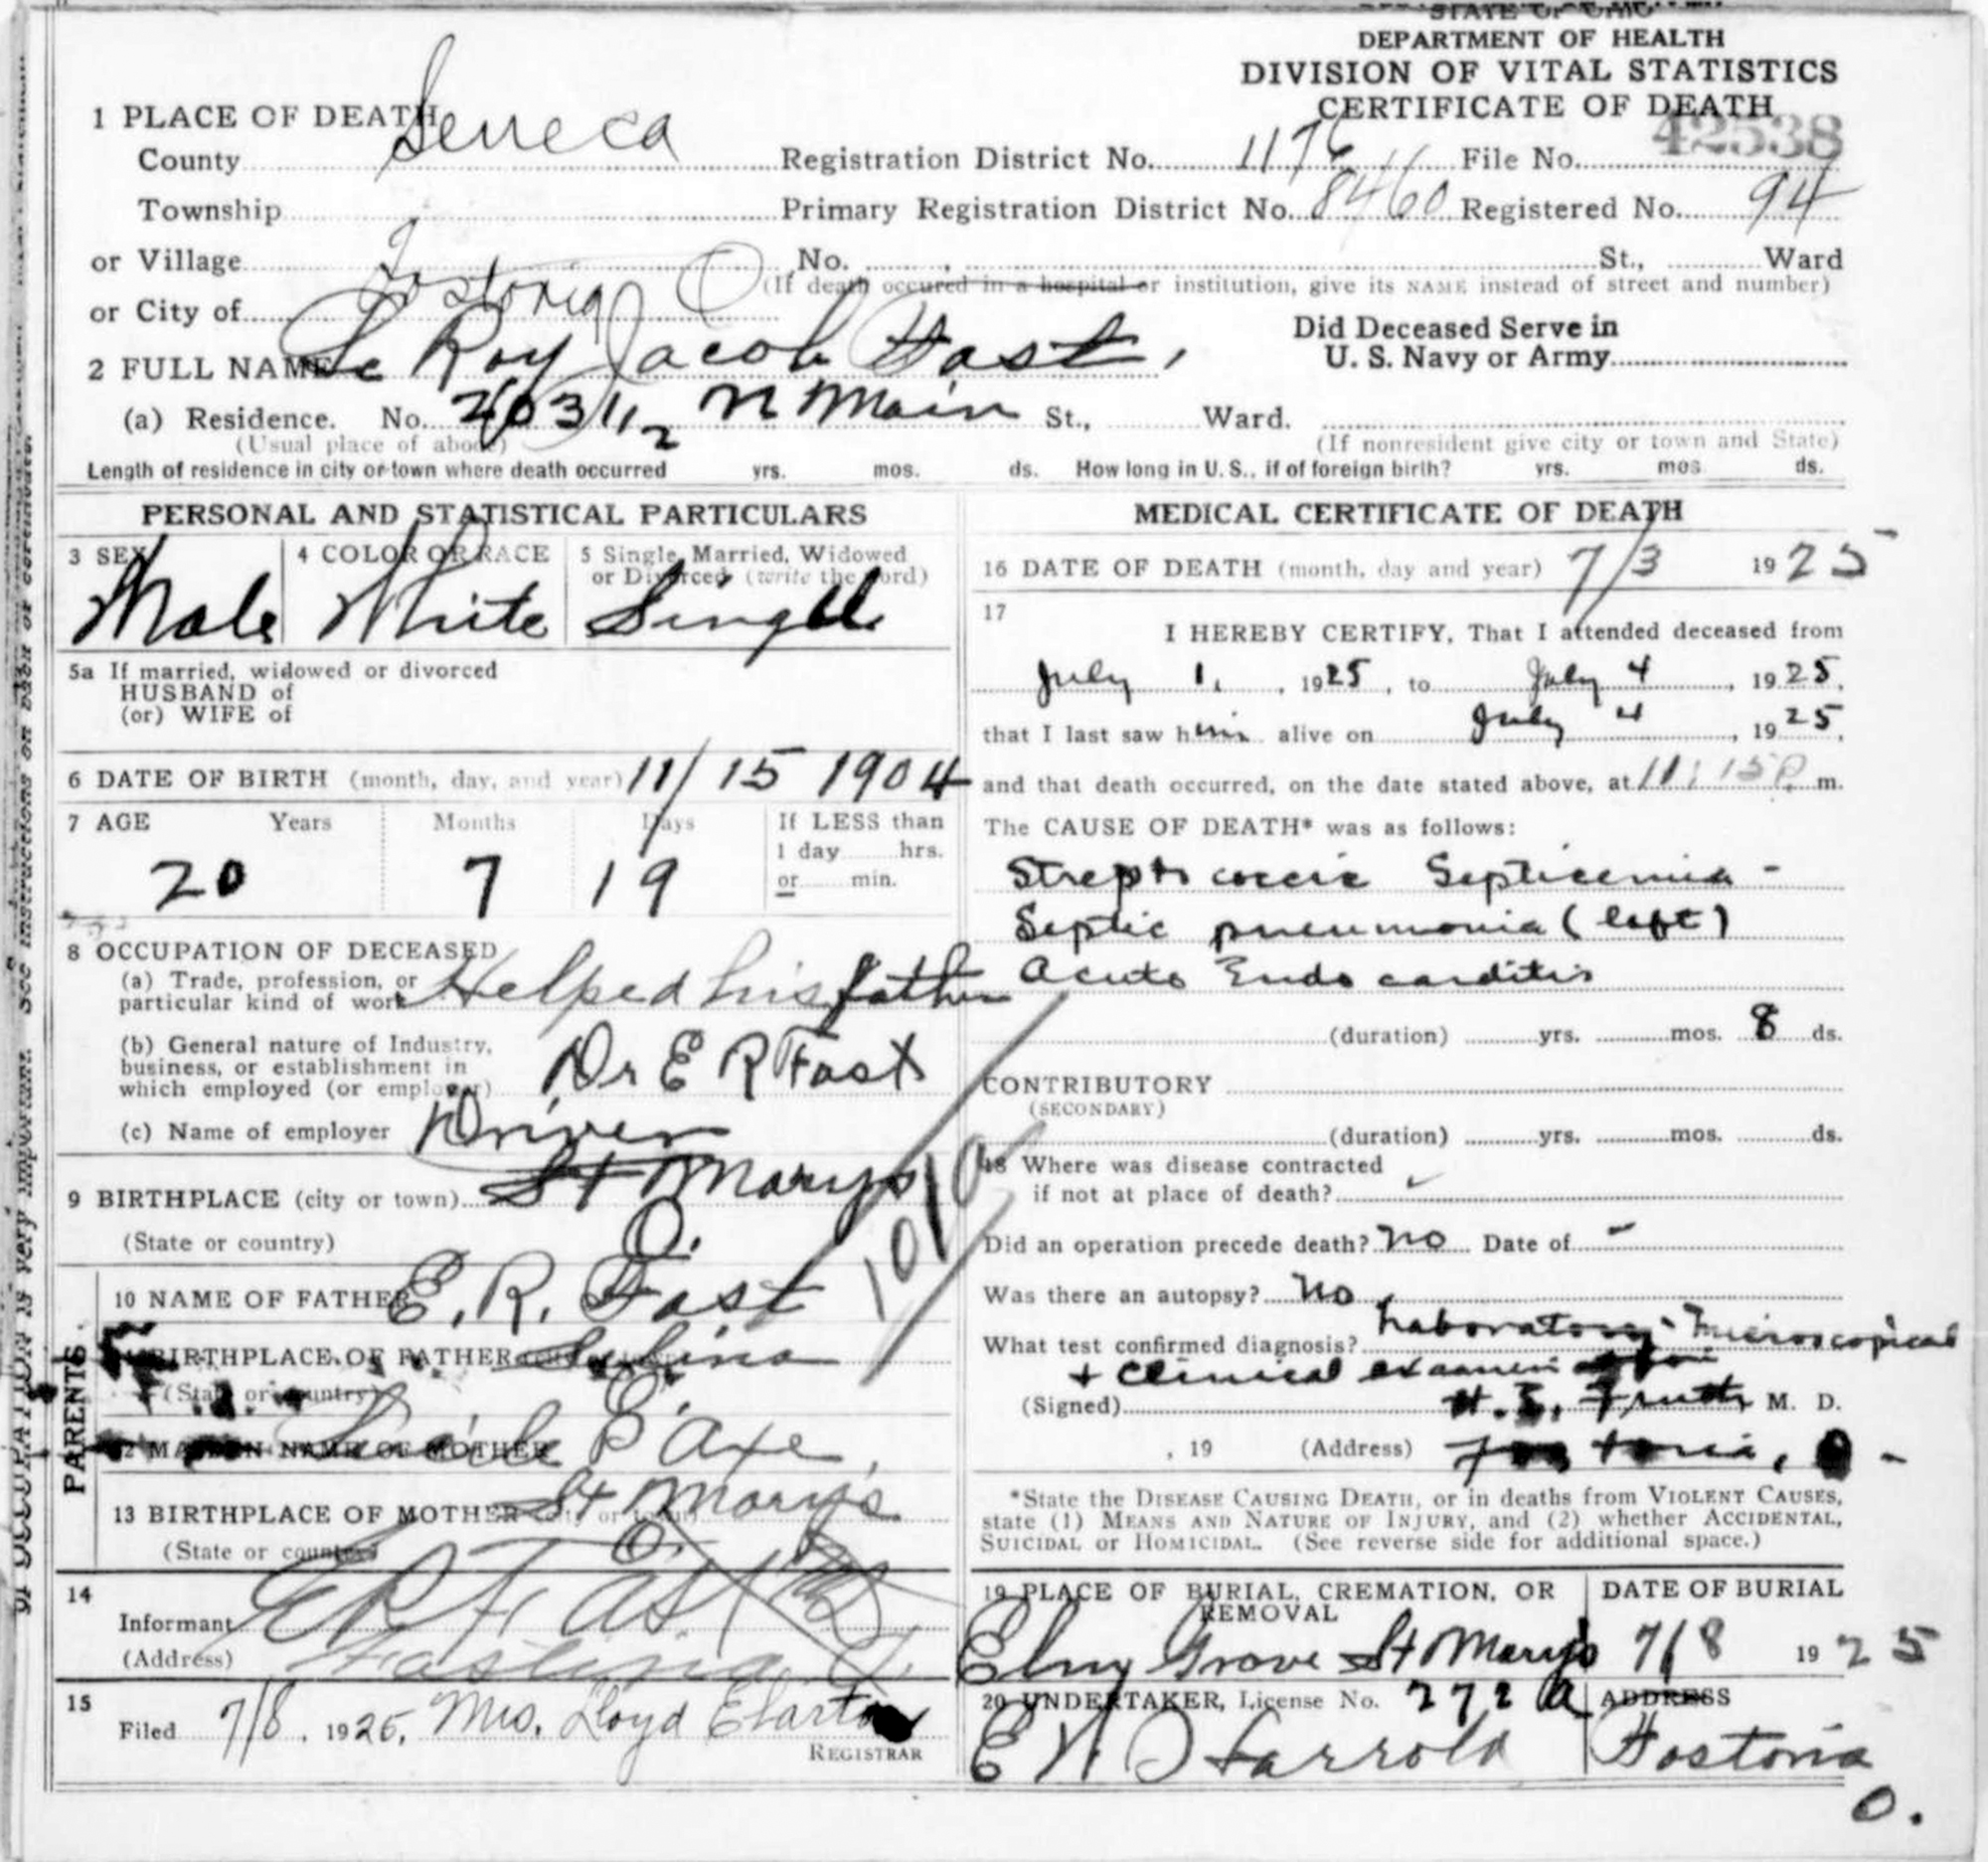 STATE OF OHIO
DEPARTMENT OF HEALTH
DIVISION OF VITAL STATISTICS
CERTIFICATE OF DEATH
42538
1 PLACE OF DEATH
County Seneca Registration District No. 1176 File No.
Township Primary Registration District No. 8460 Registered No. 94
or Village No. St., Ward
(If death occured in a hospital or institution, give its NAME instead of street and number)
or City of Fostoria O
Did Deceased Serve in
U. S. Navy or Army
2 FULL NAME Le Roy Jacob Fast,
(a) Residence. No. 203 1/2 N Main St., Ward.
(Usual place of abode) (If nonresident give city or town and State)
Length of residence in city or town where death occurred yrs. mos. ds. How long in U. S., if of foreign birth? yrs. mos ds.
PERSONAL AND STATISTICAL PARTICULARS
3 SEX 4 COLOR OR RACE 5 Single, Married, Widowed
or Divorced (write the word)
Male White Single
5a If married, widowed or divorced
HUSBAND of
(or) WIFE of
6 DATE OF BIRTH (month, day, and year) 11/15 1904
7 AGE Years Months Days If LESS than
1 day hrs.
or min.
20 7 19
8 OCCUPATION OF DECEASED
(a) Trade, profession, or
particular kind of work Helped his father
(b) General nature of Industry,
business, or establishment in
which employed (or employer) Dr E R Fast
(c) Name of employer Driver
9 BIRTHPLACE (city or town) St Marys
(State or country) O.
10 NAME OF FATHER E. R. Fast
BIRTHPLACE OF FATHER
(State or country) O.
12 MAIDEN NAME OF MOTHER Axe
13 BIRTHPLACE OF MOTHER (city or town) St Marys
(State or country) O.
PARENTS
14
Informant E R Fast
(Address)
15
Filed 7/8, 1925, Mrs. Lloyd
REGISTRAR
1010
MEDICAL CERTIFICATE OF DEATH
16 DATE OF DEATH (month, day and year) 7/3 1925
17
I HEREBY CERTIFY, That I attended deceased from
July 1, 1925, to July 4, 1925,
that I last saw him alive on July 4, 1925,
and that death occurred, on the date stated above, at 11:15 P. m.
The CAUSE OF DEATH* was as follows:
Streptococcic Septicemia -
Septic pneumonia (left)
Acute Endocarditis
(duration) yrs. mos. 8 ds.
CONTRIBUTORY
(SECONDARY)
(duration) yrs. mos. ds.
18 Where was disease contracted
if not at place of death?
Did an operation precede death? No Date of -
Was there an autopsy? No
What test confirmed diagnosis? Laboratory - Microscopical
+ Clinical examination
(Signed) M. D.
, 19 (Address) Fostoria, O -
*State the DISEASE CAUSING DEATH, or in deaths from VIOLENT CAUSES,
state (1) MEANS AND NATURE OF INJURY, and (2) whether ACCIDENTAL,
SUICIDAL or HOMICIDAL. (See reverse side for additional space.)
19 PLACE OF BURIAL, CREMATION, OR
REMOVAL
DATE OF BURIAL
Elm Grove St Marys 7/8 1925
20 UNDERTAKER, License No. 272 A ADDRESS
Harrold Fostoria
O.